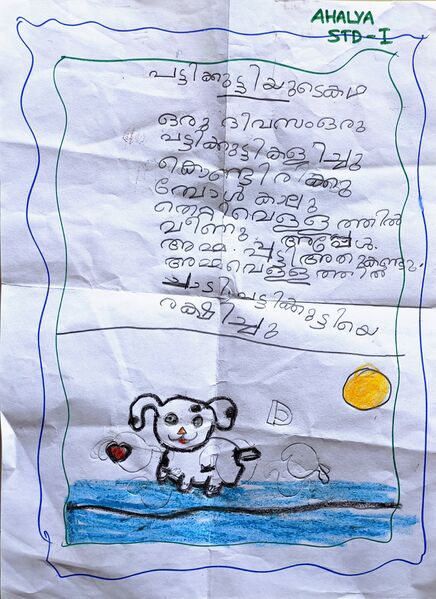 AHALYA
STD-I
പട്ടിക്കുട്ടിയുടെകഥ
ഒരു ദിവസം ഒരു
പട്ടിക്കുട്ടികളിച്ചു
കൊണ്ടിരിക്കു
മ്പോൾ കാലു
തെറ്റിവെള്ളത്തിൽ
വീണു. അപ്പോൾ
അമ്മ പട്ടി അതുകണ്ടു.
അമ്മവെള്ളത്തിൽ
ചാടിപട്ടിക്കുട്ടിയെ
രക്ഷിച്ചു